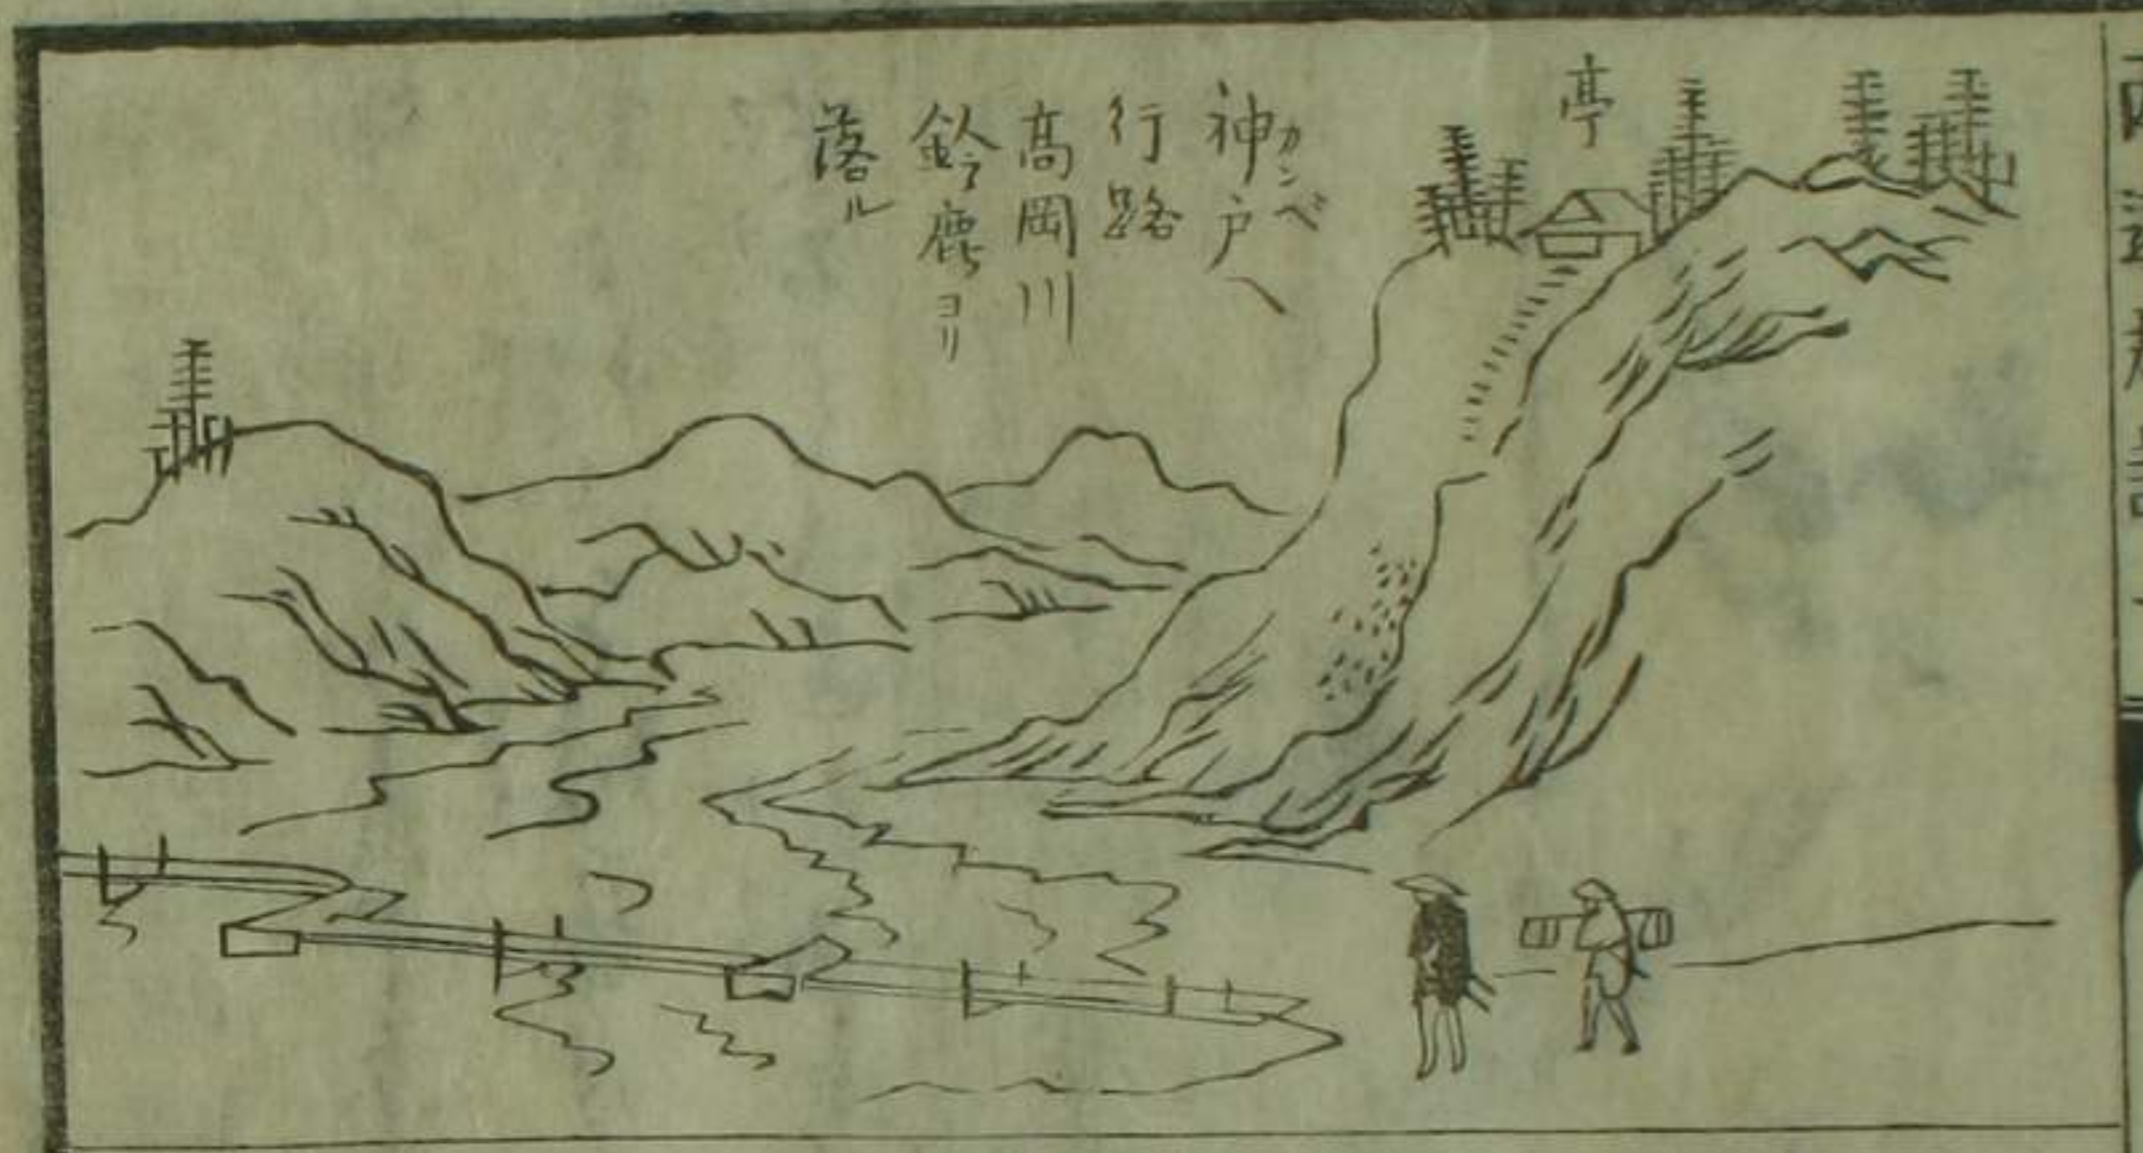 亭
神戸へ
カンベ
行路
髙岡川
鈴鹿ヨリ
落ル